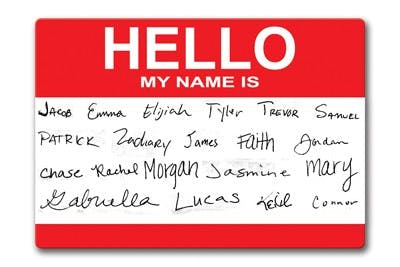 HELLO
MY NAME IS
JACOB Emma Elijiah Tyler TREVOR SAMUEL
PATRICK Zachary James Faith Jordan
chase Rachel Morgan Jasmine Mary
Gabriella Lucas Connor